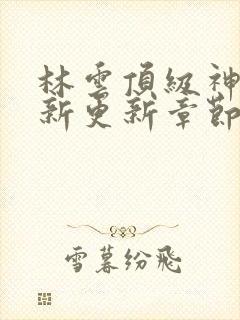 林雲頂級神
新更新章節
雪暮紛飛